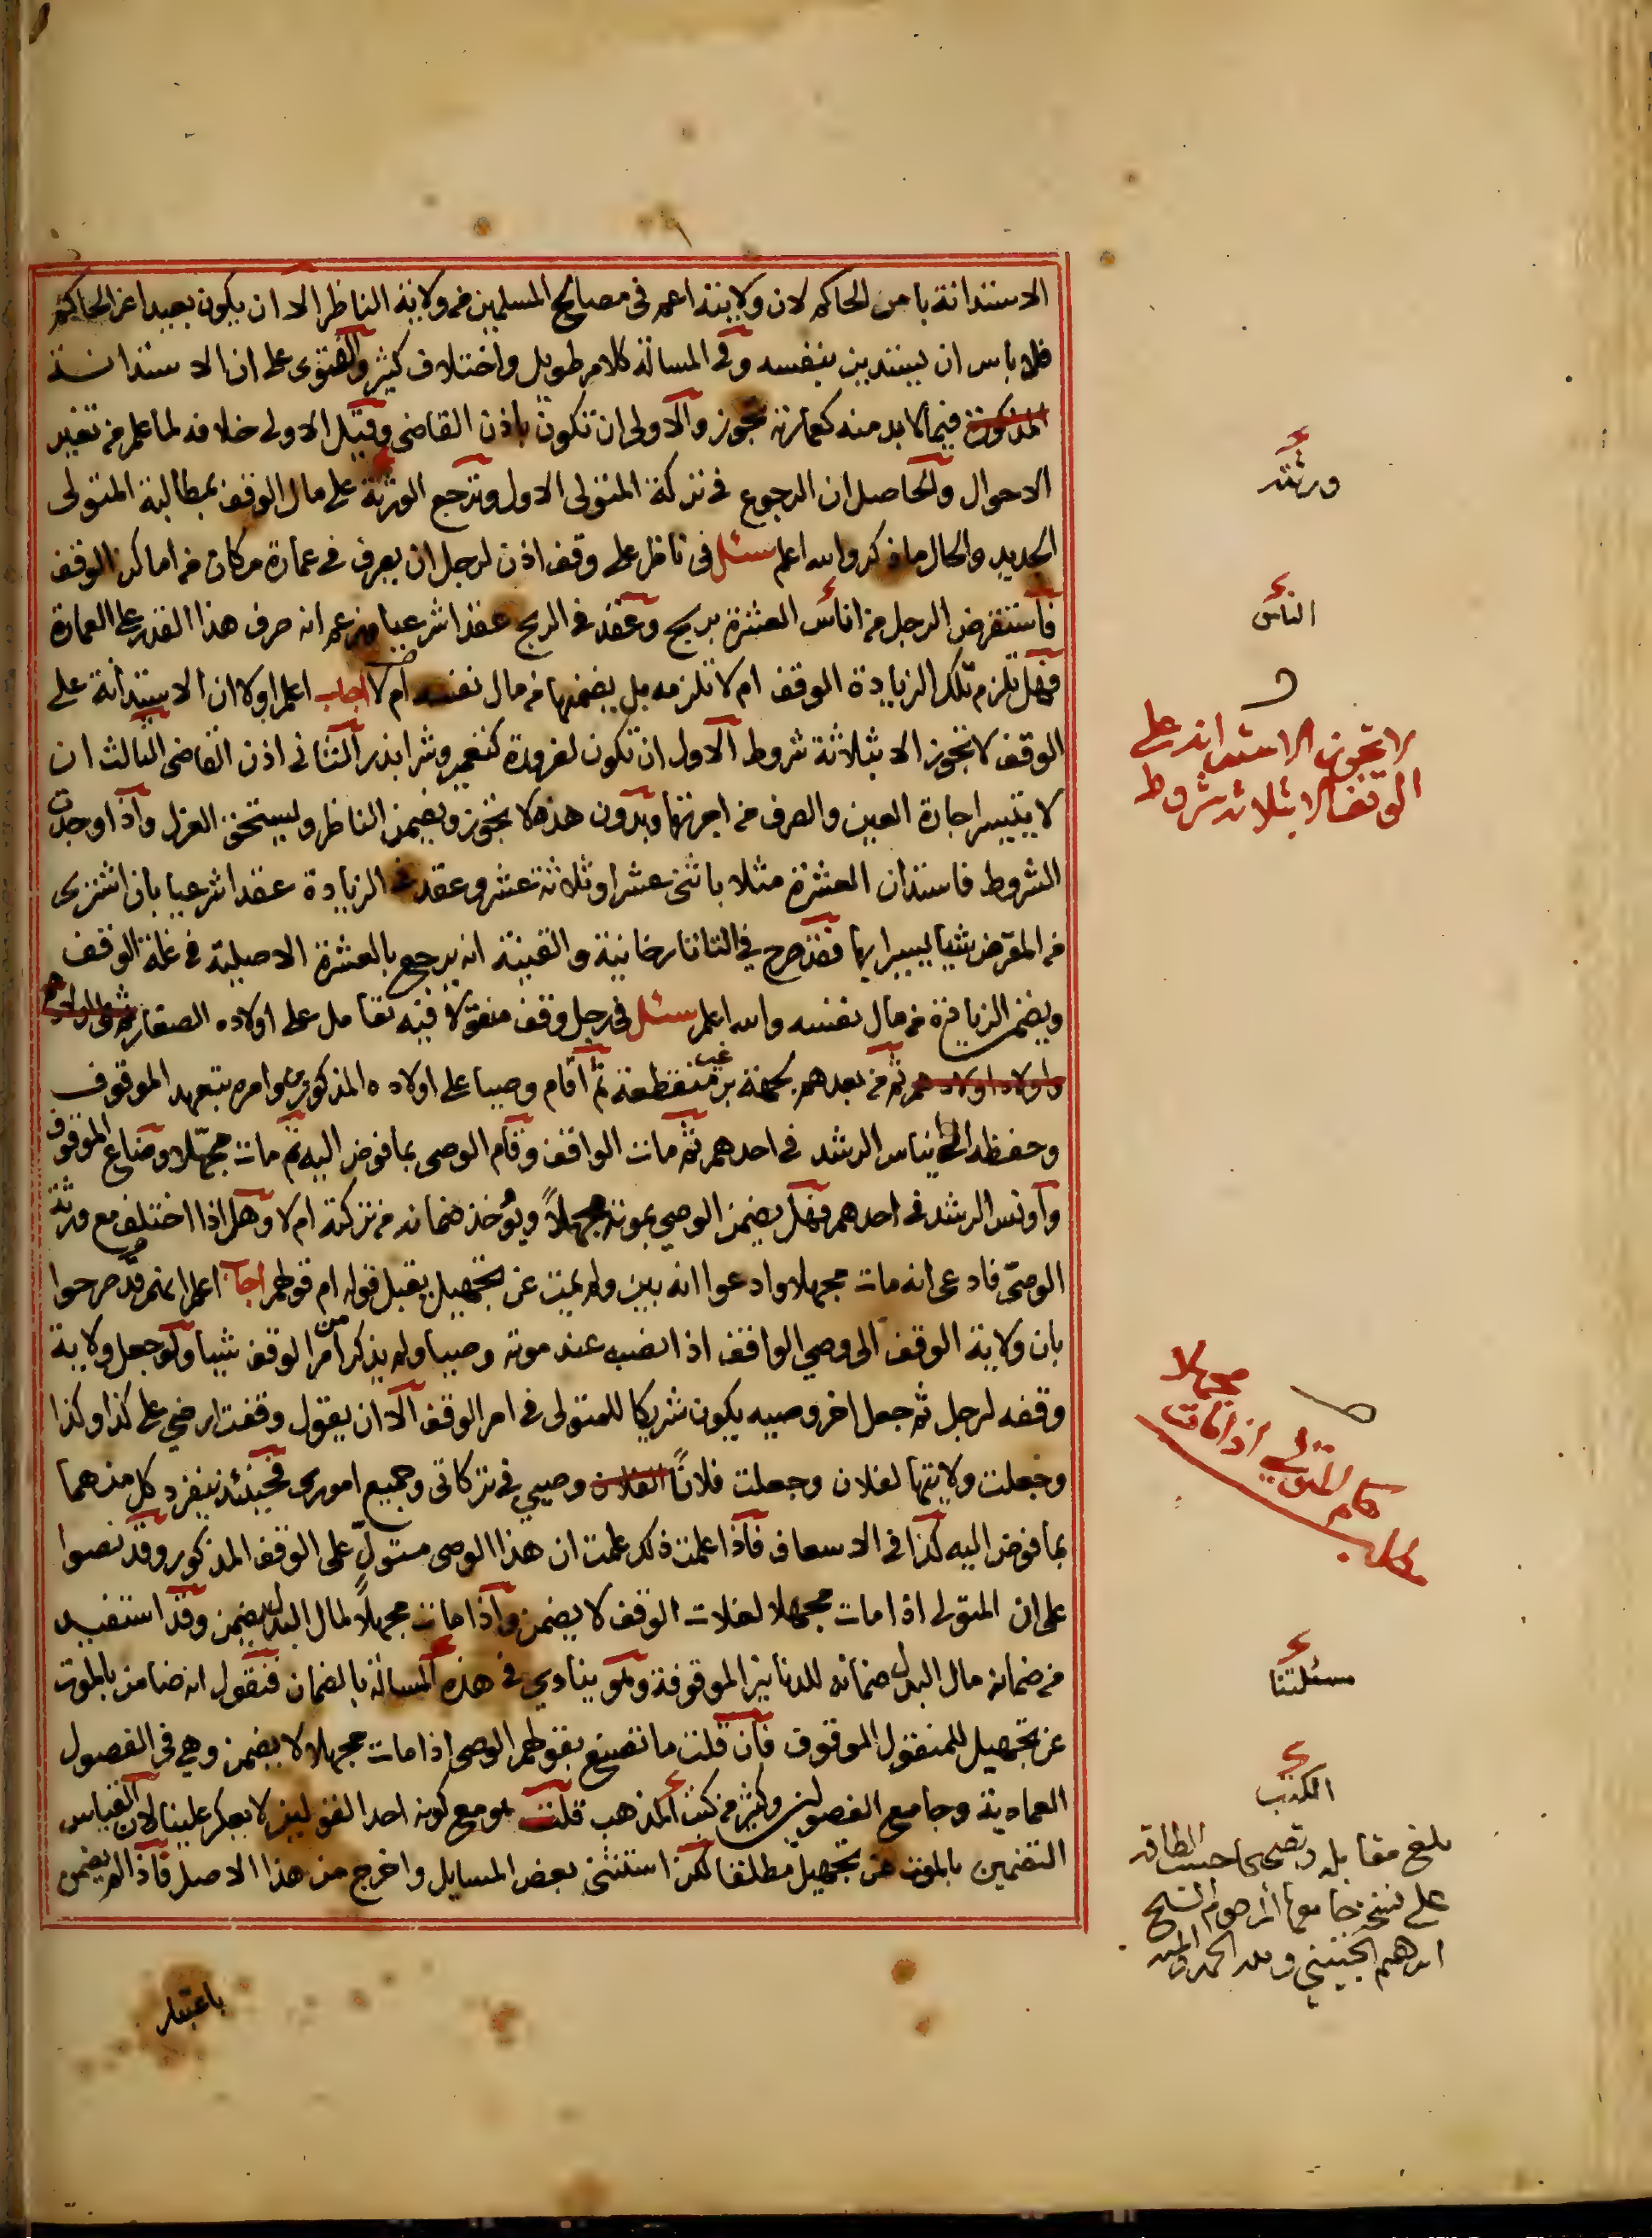 الاستدانة بامر الحاكم لان ولايته اعم في مصالح المسلمين من ولاية الناظر الا ان يكون بعيدا عن الحاكم
فلا باس ان يستدين بنفسه وفي المسالة كلام طويل واختلاف كثير والفتوى على ان الاستدانة
المذكورة فيما لا بد منه كعمارته تجوز والاولى ان تكون باذن القاضي وقيل الاولى خلافه لما علم من تغير
الاحوال والحاصل ان الرجوع في تركة المتولى الاول وترجع الورثة على مال الوقف بمطالبة المتولى
الجديد والحال ما ذكر والله اعلم سئل في ناظر على وقف اذن لرجل ان يصرف في عمارة مكان من اماكن الوقف
فاستقرض الرجل من اناس العشرة بربح وعقد في الربح عقدا شرعيا وزعم انه صرف هذا القدر على العمارة
فهل تلزم تلك الزيادة الوقف ام لا تلزمه بل يضمنها من مال نفسه ام لا اجاب اعلم اولا ان الاستدانة على
الوقف لا تجوز الا بثلاثة شروط الاول ان تكون لضرورة كتعمير وشرا بذر الثاني اذن القاضي الثالث ان
لا يتيسر اجارة العين والصرف من اجرتها وبدون هذه لا تجوز ويضمن الناظر ويستحق العزل واذا وجدت
الشروط فاستدان العشرة مثلا باثنى عشر او ثلاثة عشر وعقد في الزيادة عقدا شرعيا بان اشترى
من المقرض شيا يسيرا بها فقد صرح في التاتارخانية والقنية انه يرجع بالعشرة الاصلية في غلة الوقف
ويضمن الزيادة من مال نفسه والله اعلم سئل في رجل وقف منقولا فيه تعامل على اولاده الصغار ثم على اولادهم
واولاد اولادهم ثم من بعدهم بجهة بر غير منقطعة ثم اقام وصيا على اولاده المذكورين وامره بتعهد الموقوف
وحفظه الى ايناس الرشد في احدهم ثم مات الواقف وقام الوصى بما فوض اليه ثم مات مجهلا وضاع الموقوف
واونس الرشد في احدهم فهل يضمن الوصي بموته مجهلاً ويؤخذ ضمانه من تركته ام لا وهل اذا اختلف مع ورثة
الوصى فادعى انه مات مجهلا وادعوا انه بين ولم يمت عن تجهيل يقبل قوله ام قولهم اجاب اعلم انهم قد صرحوا
بان ولاية الوقف الى وصي الواقف اذا نصب عند موته وصيا ولم يذكر من امر الوقف شيا ولو جعل ولاية
وقفه لرجل ثم جعل اخر وصيه يكون شريكا للمتولى في امر الوقف الا ان يقول وقفت ارضي على كذا وكذا
وجعلت ولايتها لفلان وجعلت فلاناً الفلان وصيي في تركاتي وجميع اموري فحينئذ ينفرد كل منهما
بما فوض اليه كذا في الاسعاف فاذا علمت ذلك علمت ان هذا الوصى متولٍ على الوقف المذكور وقد نصوا
على ان المتولى اذا مات مجهلا لغلات الوقف لا يضمن واذا مات مجهلاً لمال البدل يضمن وقد استفيد
من ضمانه مال البدل ضمانه للدنانير الموقوفة وهو ينادي في هذه المسالة بالضمان فنقول انه ضامن بالموت
عن تجهيل للمنقول الموقوف فان قلت ما تصنع بقولهم الوصى اذا مات مجهلا لا يضمن وهي في الفصول
العمادية وجامع الفصولين وكثير من كتب المذهب قلت هو مع كونه احد القولين لا يعكر علينا لان القياس
التضمين بالموت عن تجهيل مطلقا لكن استثنى بعض المسايل واخرج من هذا الاصل فاذا لم يضمن
باعتبار
ورثته
الناس
لا تجوز الاستدانة على
الوقف الا بثلاثة شروط
مطلب
حكم المتولي اذا مات
مجهلا
مسئلتنا
الكتب
بلغ مقابلة وتصحيحا حسب الطاقة
على نسخة جامعها المرحوم الشيخ
ابرهيم الجنيني ولله الحمد والمنة